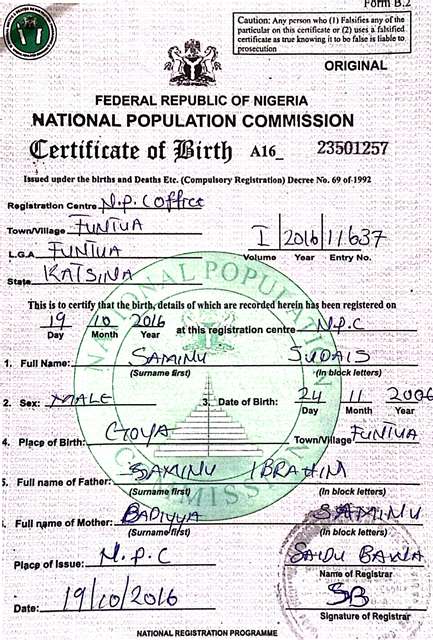 Form B.2
Caution: Any person who (1) Falsifies any of the
particular on this certificate or (2) uses a falsified
certificate as true knowing it to be false is liable to
prosecution
ORIGINAL
FEDERAL REPUBLIC OF NIGERIA
NATIONAL POPULATION COMMISSION
Certificate of Birth A16_ 23501257
Issued under the births and Deaths Etc. (Compulsory Registration) Decree No. 69 of 1992
Registration Centre N.P.C Office
Town/Village FUNTUA
I 2016 11.637
Volume Year Entry No.
L.G.A FUNTUA
State KATSINA
This is to certify that the birth, details of which are recorded herein has been registered on
19 10 2016 at this registration centre N.P.C
Day Month Year
1. Full Name: SAMINU SUDAIS
(Surname first) (In block letters)
2. Sex: MALE 3. Date of Birth: 24 11 2006
Day Month Year
4. Place of Birth: GOYA Town/Village FUNTUA
5. Full name of Father: SAMINU IBRAHIM
(Surname first) (In block letters)
Full name of Mother: BADIYYA SAMINU
(Surname first) (In block letters)
Place of Issue: N.P.C SAIDU BAWA
Name of Registrar
Date: 19/10/2016 SB
Signature of Registrar
NATIONAL REGISTRATION PROGRAMME
NATIONAL POPULATION COMMISSION